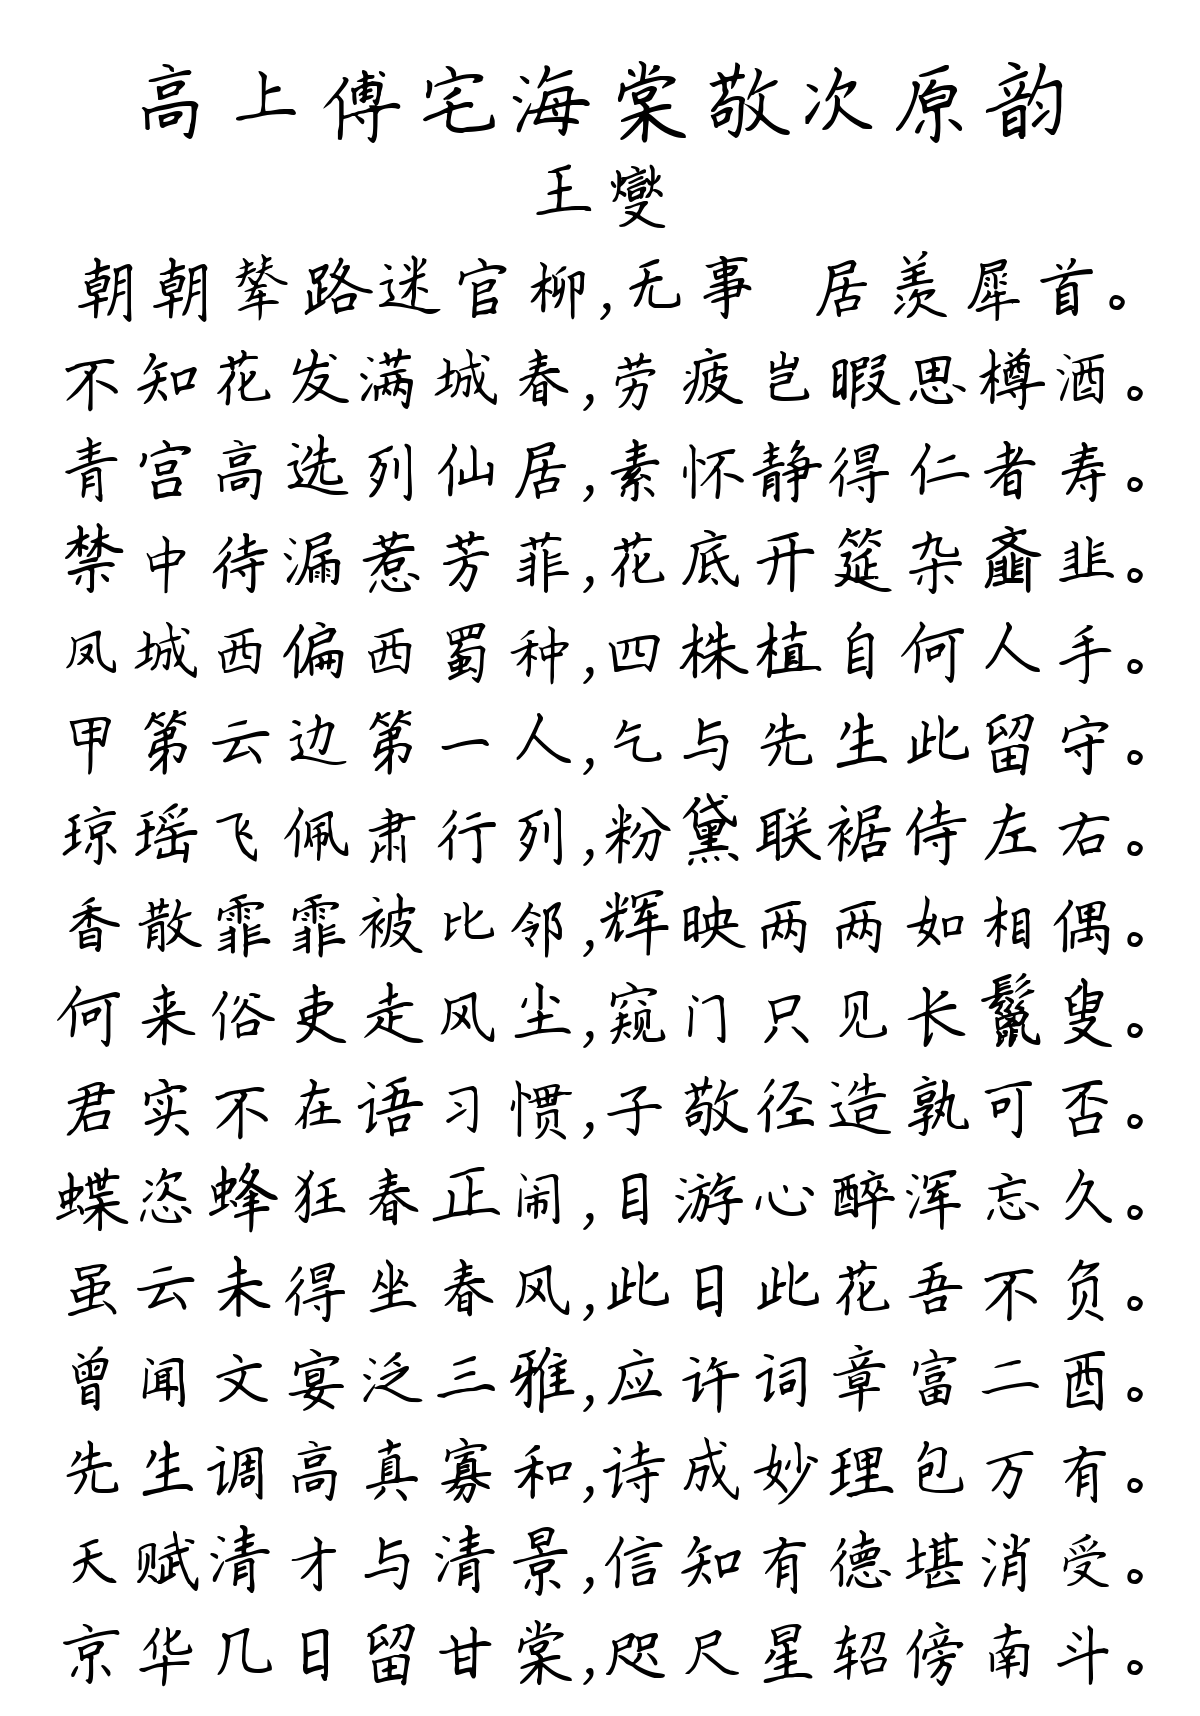 高上傅宅海棠敬次原韵
王燮
朝朝辇路迷官柳,无事 居羡犀首。
不知花发满城春,劳疲岂暇思樽酒。
青宫高选列仙居,素怀静得仁者寿。
禁中待漏惹芳菲,花底开筵杂齑韭。
凤城西偏西蜀种,四株植自何人手。
甲第云边第一人,乞与先生此留守。
琼瑶飞佩肃行列,粉黛联裾侍左右。
香散霏霏被比邻,辉映两两如相偶。
何来俗吏走风尘,窥门只见长鬣叟。
君实不在语习惯,子敬径造孰可否。
蝶恣蜂狂春正闹,目游心醉浑忘久。
虽云未得坐春风,此日此花吾不负。
曾闻文宴泛三雅,应许词章富二酉。
先生调高真寡和,诗成妙理包万有。
天赋清才与清景,信知有德堪消受。
京华几日留甘棠,咫尺星轺傍南斗。